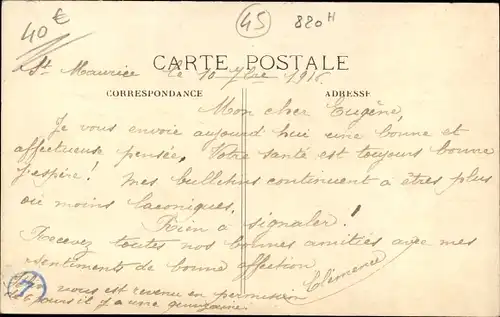 40€
45
880H
CARTE POSTALE
St Maurice le 10 7bre 1916.
CORRESPONDANCE ADRESSE
Mon cher Eugène,
Je vous envoie aujourd'hui une bonne et
affectueuse pensée. Votre santé est toujours bonne
j'espère! mes bulletins continuent à êtres plus
ou moins laconiques.
Rien à signaler!
Recevez toutes nos bonnes amitiés avec mes
sentiments de bonne affection
Clémence
nous est revenu en permission
jours il y a une quinzaine.